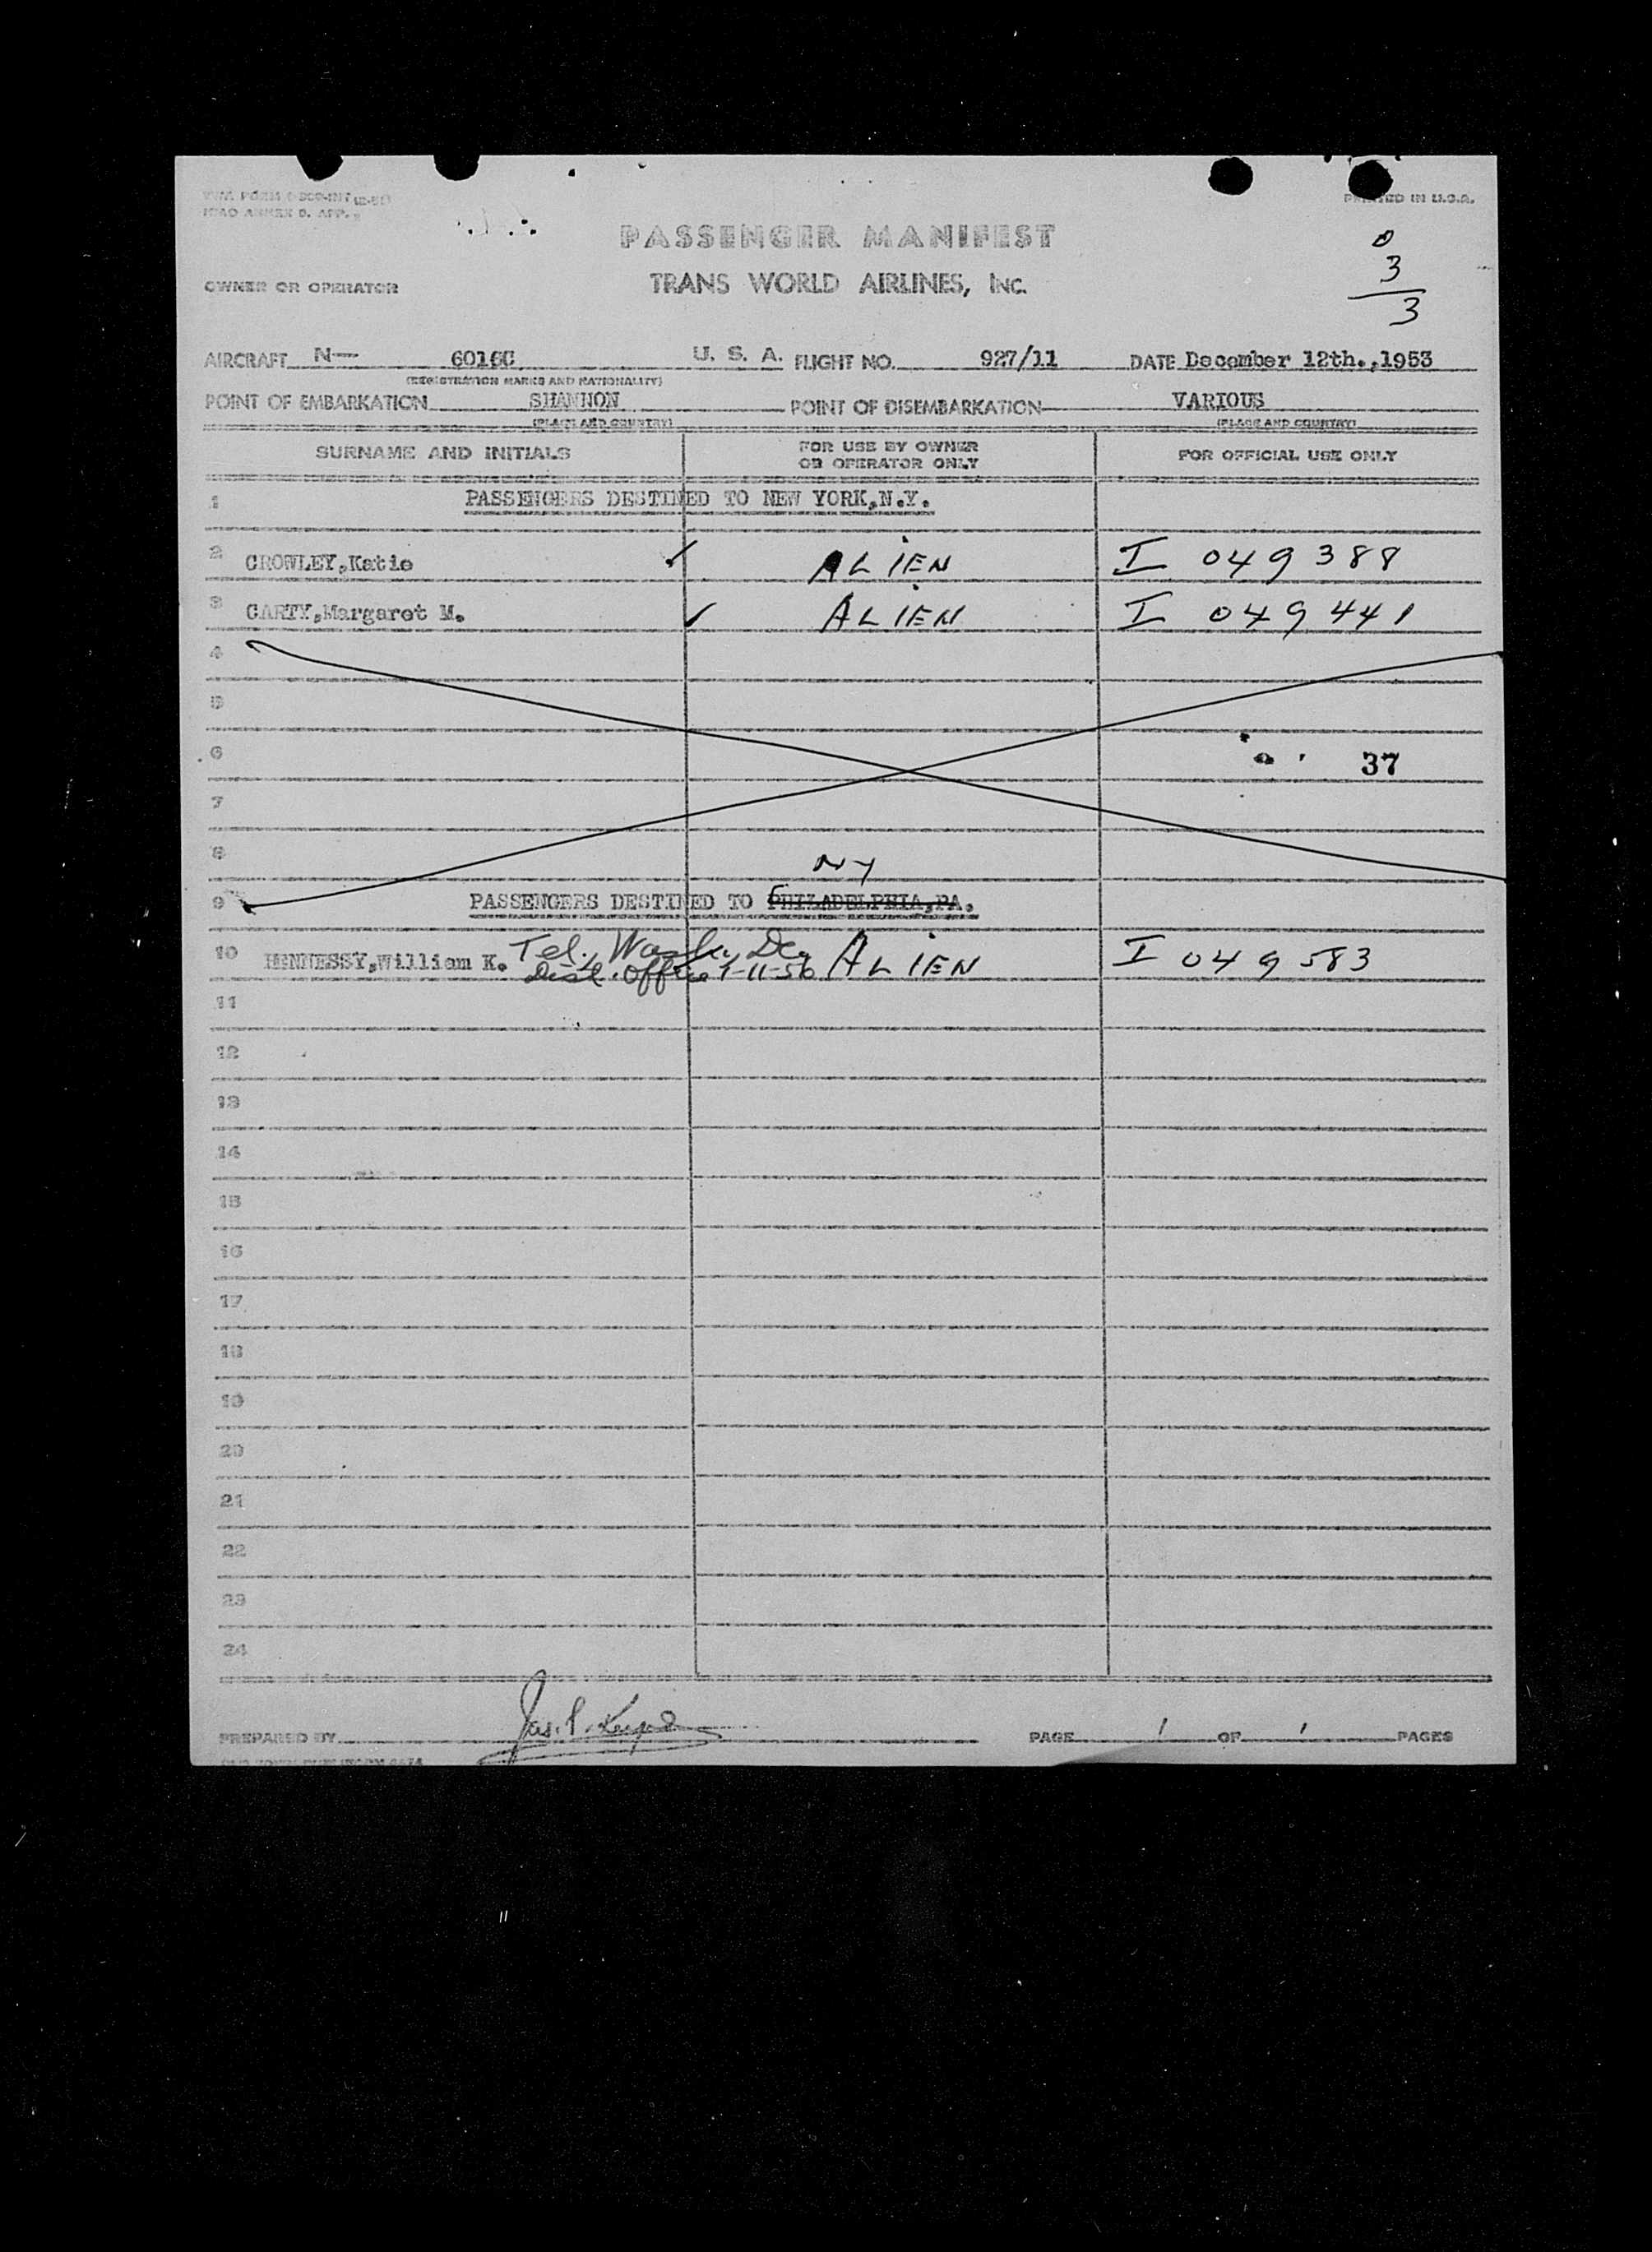 PRINTED IN U.S.A.
PASSENGER MANIFEST
0
3
3
OWNER OR OPERATOR
TRANS WORLD AIRLINES, INC.
AIRCRAFT N— 6016C U. S. A. FLIGHT NO. 927/11 DATE December 12th.,1953
(REGISTRATION MARKS AND NATIONALITY)
POINT OF EMBARKATION SHANNON POINT OF DISEMBARKATION VARIOUS
(PLACE AND COUNTRY) (PLACE AND COUNTRY)
SURNAME AND INITIALS FOR USE BY OWNER OR OPERATOR ONLY FOR OFFICIAL USE ONLY
1 PASSENGERS DESTINED TO NEW YORK,N.Y.
2 CROWLEY,Katie ✓ ALIEN I 049388
3 CARTY,Margaret M. ✓ ALIEN I 049441
4
5
6 37
7
8
NY
9 PASSENGERS DESTINED TO PHILADELPHIA,PA.
10 HENNESSY,William K. Tel. Wash. DC. ALIEN I 049583
Dist. Office 1-11-56
11
12
13
14
15
16
17
18
19
20
21
22
23
24
PREPARED BY PAGE 1 OF 1 PAGES